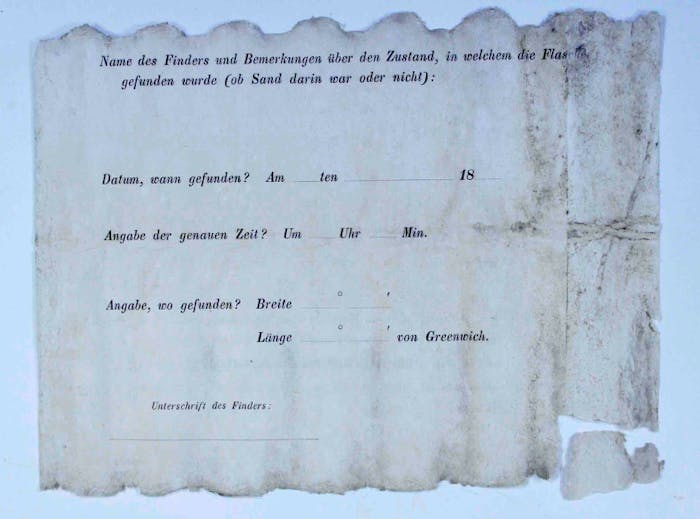 Name des Finders und Bemerkungen über den Zustand, in welchem die Flasche
gefunden wurde (ob Sand darin war oder nicht):
Datum, wann gefunden? Am ten 18
Angabe der genauen Zeit? Um Uhr Min.
Angabe, wo gefunden? Breite ° ′
Länge ° ′ von Greenwich.
Unterschrift des Finders: